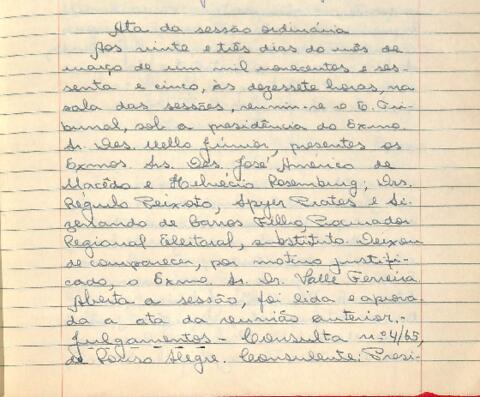 Ata da sessão ordinária
Aos vinte e três dias do mês de
março de um mil novecentos e ses-
senta e cinco, às dezessete horas, na
sala das sessões, reuniu-se o E. Tri-
bunal, sob a presidência do Exmo
Sr. Des. Mello Júnior, presentes os
Exmos. Srs. Des. José Américo de
Macêdo e Helvecio Rosemburg; Drs.
Régulo Peixoto, Spyer Prates e Si-
zenando de Barros Filho, Procurador
Regional Eleitoral, substituto. Deixou
de comparecer, por motivo justifi-
cado, o Exmo. Sr. Dr. Valle Ferreira.
Aberta a sessão, foi lida e aprova-
da a ata da reunião anterior.-
Julgamentos - Consulta nº 4/65,
de Pouso Alegre. Consulente: Presi-